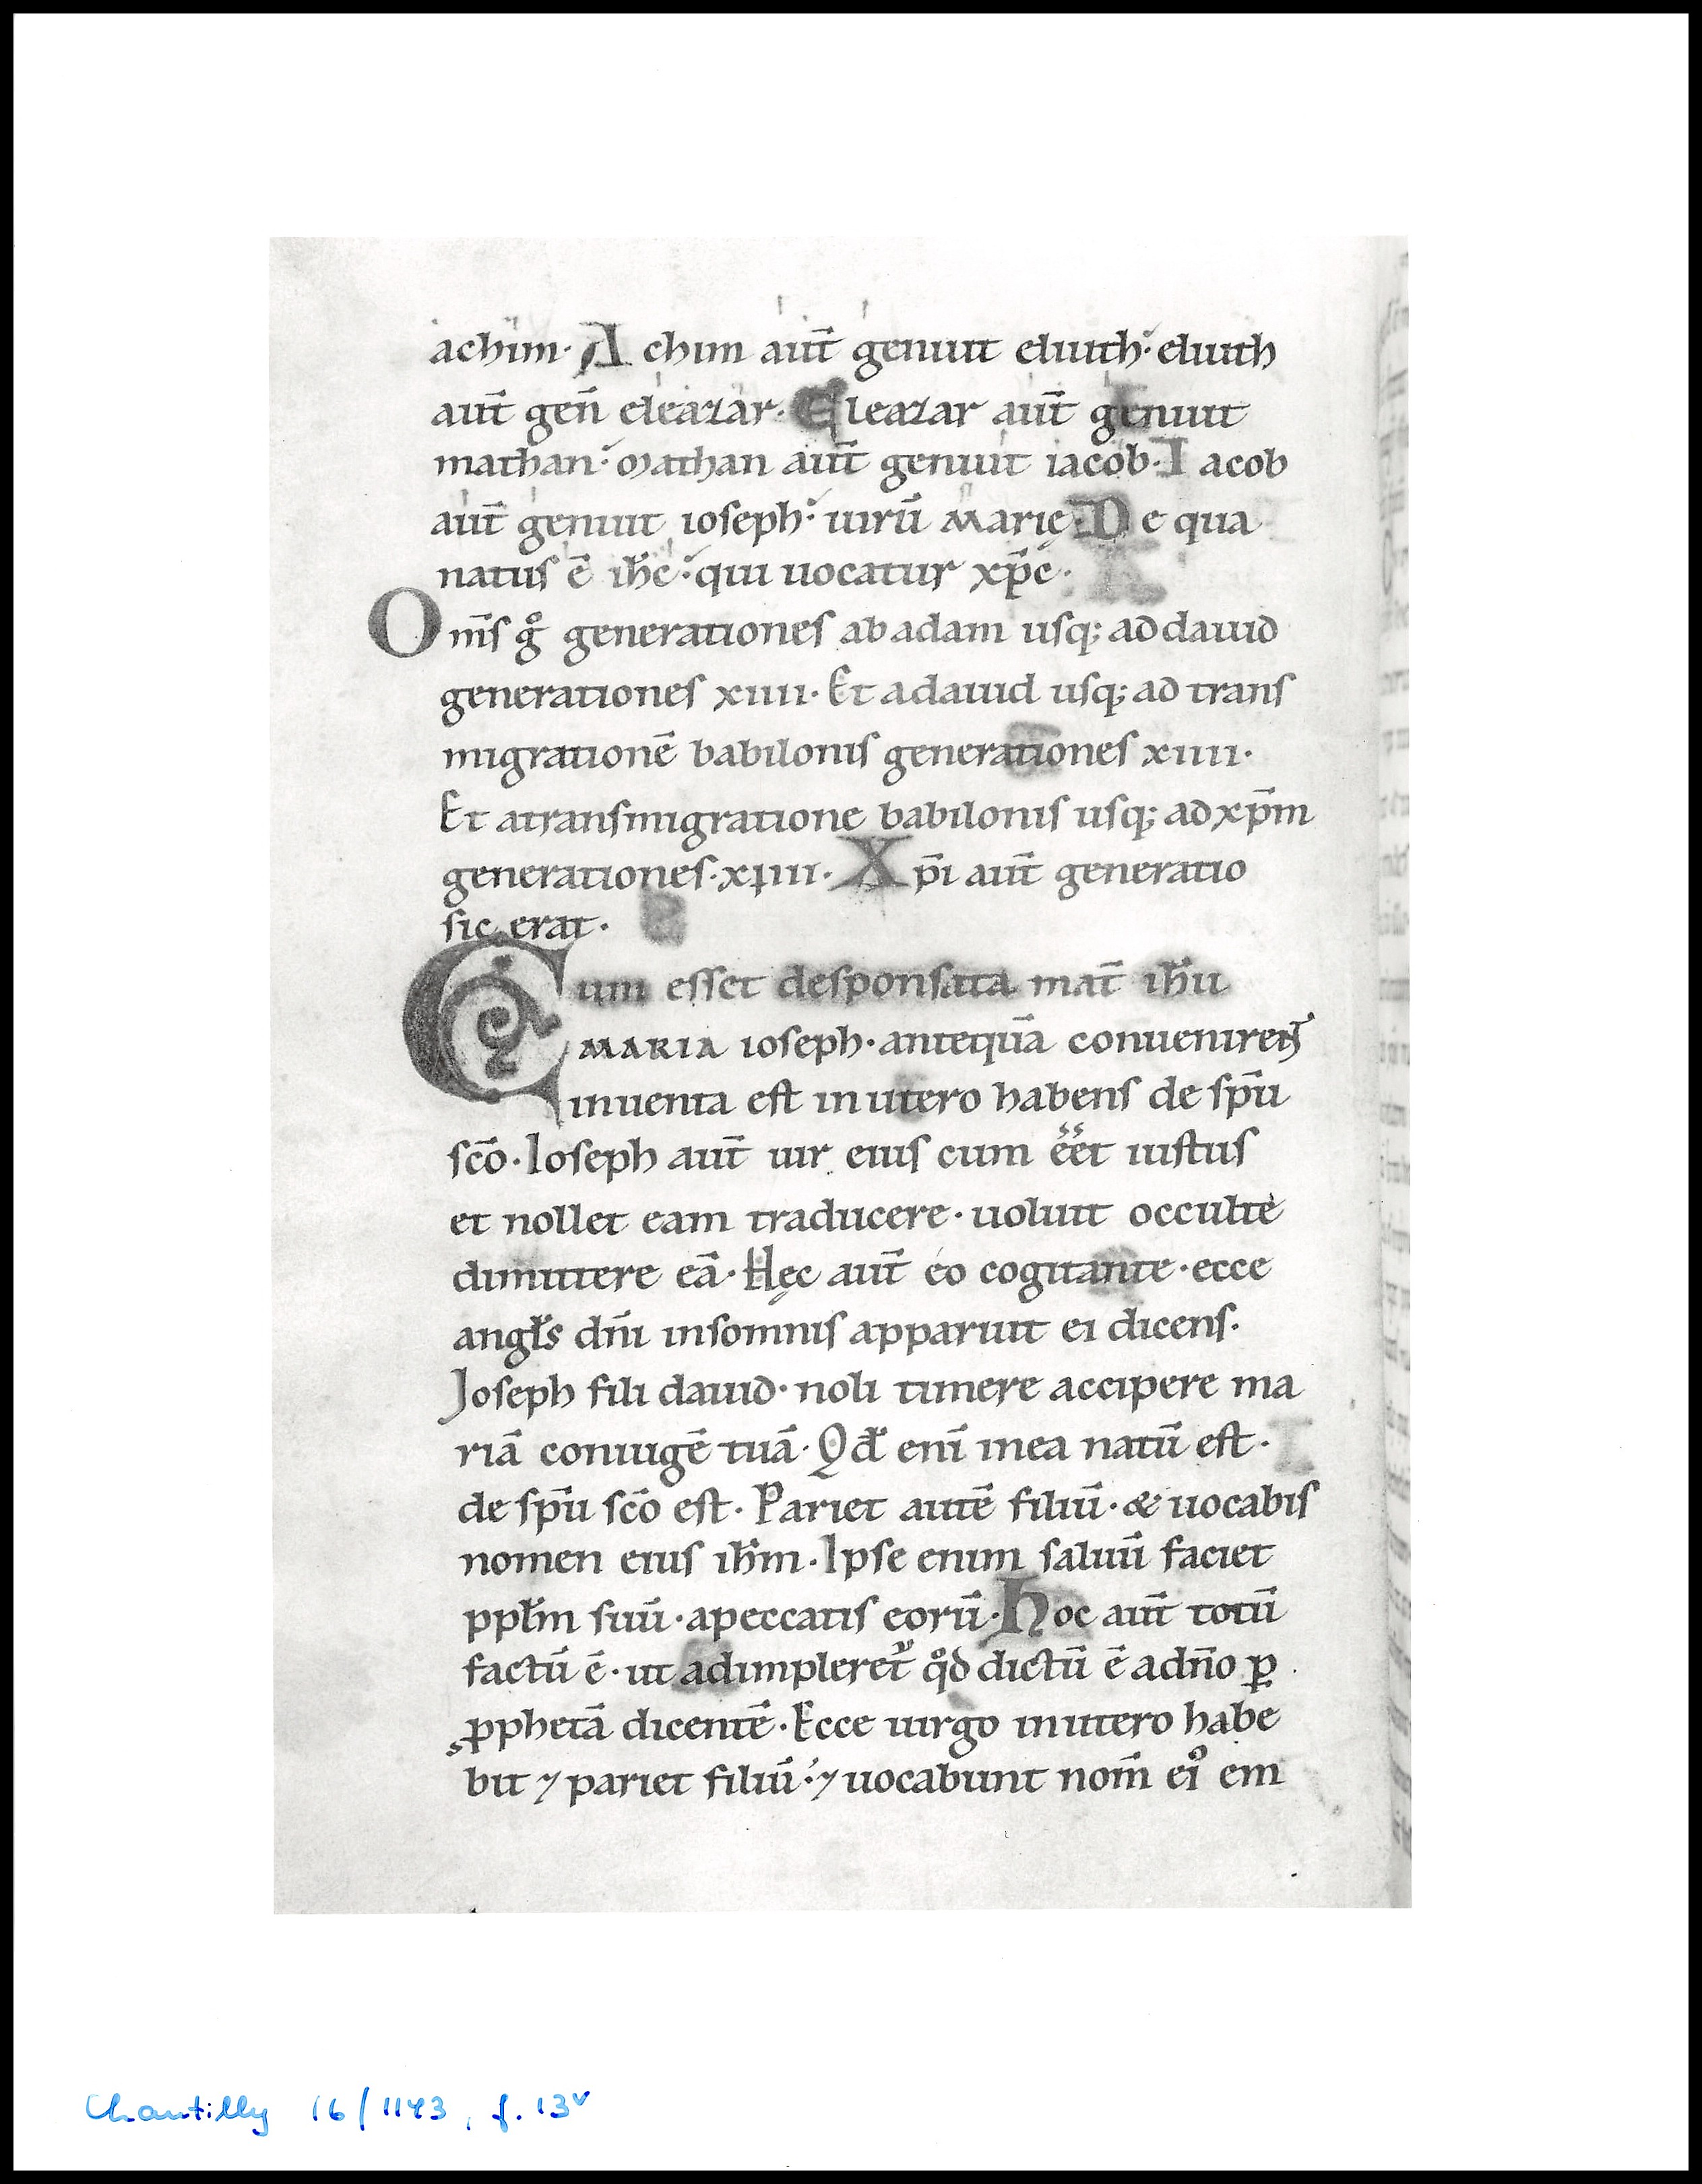 achim· Achim aut̄ genuit eliuth: eliuth
aut̄ gen̄ eleazar· Eleazar aut̄ genuit
mathan: Mathan aut̄ genuit iacob· Iacob
aut̄ genuit ioseph: uirū Marię· De qua
natus ē ihc̄: qui uocatur xp̄c·
Om̄s gͦ generationes ab adam usq; ad dauid
generationes xiiii· Et a dauid usq; ad trans
migrationē babilonis generationes xiiii·
Et a transmigratione babilonis usq; ad xp̄m
generationes·xiiii· Xp̄i aut̄ generatio
sic erat·
Cum esset desponsata mat̄ ih̄u
MARIA ioseph· antequā conuenirent
inuenta est in utero habens de sp̄u
sc̄o· Ioseph aut̄ uir eius cum eēt iustus
et nollet eam traducere· uoluit occulte
dimittere eā· Hęc aut̄ eo cogitante· ecce
angl̄s dn̄i in somnis apparuit ei dicens·
Joseph fili dauid· noli timere accipere ma
riā coniugē tuā· Qd̄ enī in ea natū est·
de sp̄u sc̄o est· Pariet autē filiū· & uocabis
nomen eius ih̄m· Ipse enim saluū faciet
ppl̄m suū· a peccatis eorū· Hoc aut̄ totū
factū ē· ut adimpleret᷑ qͦd dictū ē a dn̄o ꝑ
ꝓphetā dicentē· Ecce uirgo in utero habe
bit ⁊ pariet filiū: ⁊ uocabunt nom̄ ei⁹ em
Chantilly 16/1143, f. 13v